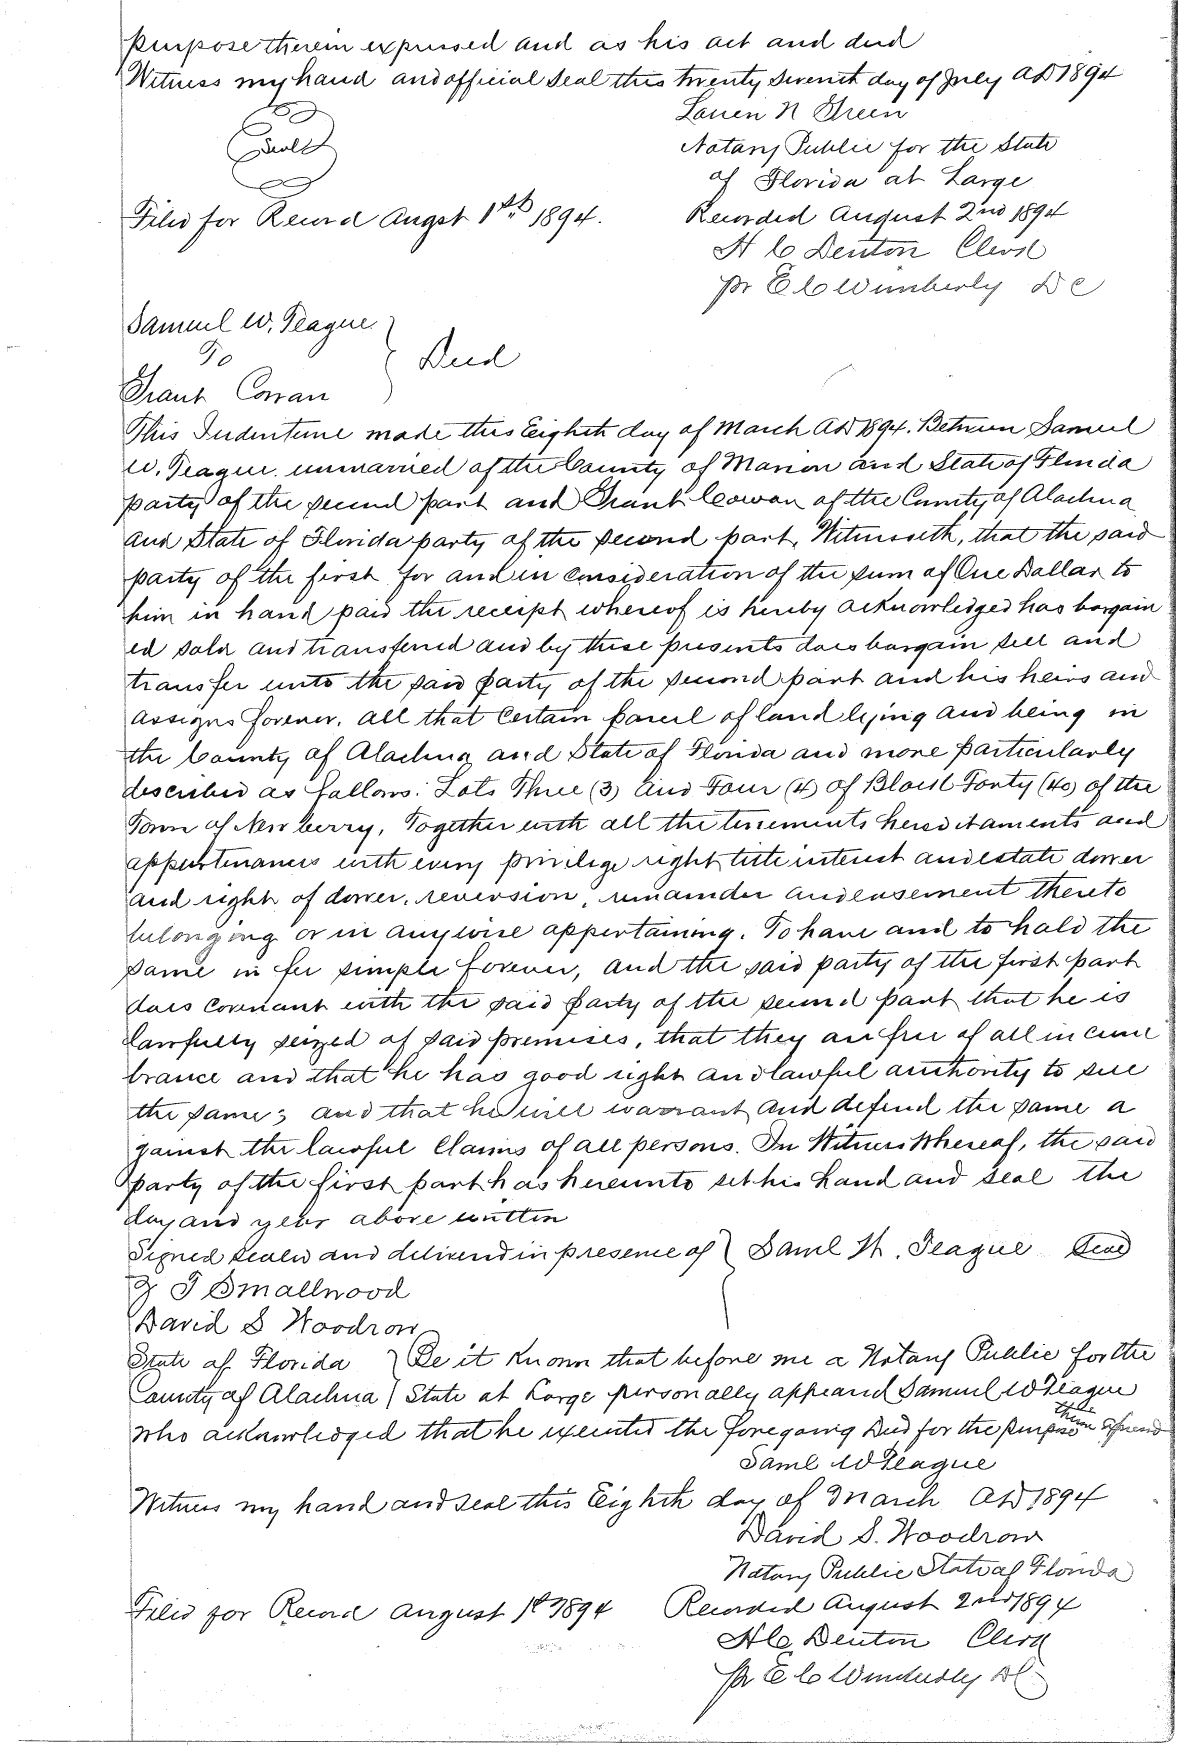 purpose therein expressed and as his act and deed
Witness my hand and official Seal this twenty Seventh day of July AD 1894
Loren N Green
Seal
Notary Public for the State
of Florida at Large
Filed for Record Augst 1st 1894.
Recorded August 2nd 1894
H C Denton Clerk
pr E C Wimberly D C
Samuel W. Teague
To
Deed
Grant Cowan
This Indenture made this Eighth day of March AD 1894. Between Samuel
W. Teague unmarried of the County of Marion and State of Florida
party of the second part and Grant Cowan of the County of Alachua
and State of Florida party of the second part, Witnesseth, that the said
party of the first for and in consideration of the sum of One Dollar to
him in hand paid the receipt whereof is hereby acknowledged has bargain
ed sold and transferred and by these presents does bargain sell and
transfer unto the said party of the second part and his heirs and
assigns forever, all that certain parcel of land lying and being in
the County of Alachua and State of Florida and more particularly
described as follows: Lots Three (3) and Four (4) of Block Forty (40) of the
Town of New berry, Together with all the tenements hereditaments and
appurtenances with every privilege right title interest and estate dower
and right of dower, reversion, remainder and easement thereto
belonging or in anywise appertaining. To have and to hold the
same in fee simple forever, and the said party of the first part
does covenant with the said party of the second part that he is
lawfully seized of said premises, that they are free of all incum
brance and that he has good right and lawful authority to sell
the same; and that he will warrant and defend the same a
gainst the lawful claims of all persons. In Witness Whereof, the said
party of the first part has hereunto set his hand and seal the
day and year above written
Signed sealed and delivered in presence of Saml W. Teague Seal
T Smallwood
David S Woodrow
State of Florida Be it Known that before me a Notary Public for the
County of Alachua State at Large personally appeared Samuel W Teague
who acknowledged that he executed the foregoing Deed for the purpose therein expressed
Saml W Teague
Witness my hand and seal this Eighth day of March AD 1894
David S. Woodrow
Notary Public State of Florida
Filed for Record August 1st 1894 Recorded August 2nd 1894
H C Denton Clerk
pr E C Wimberly DC